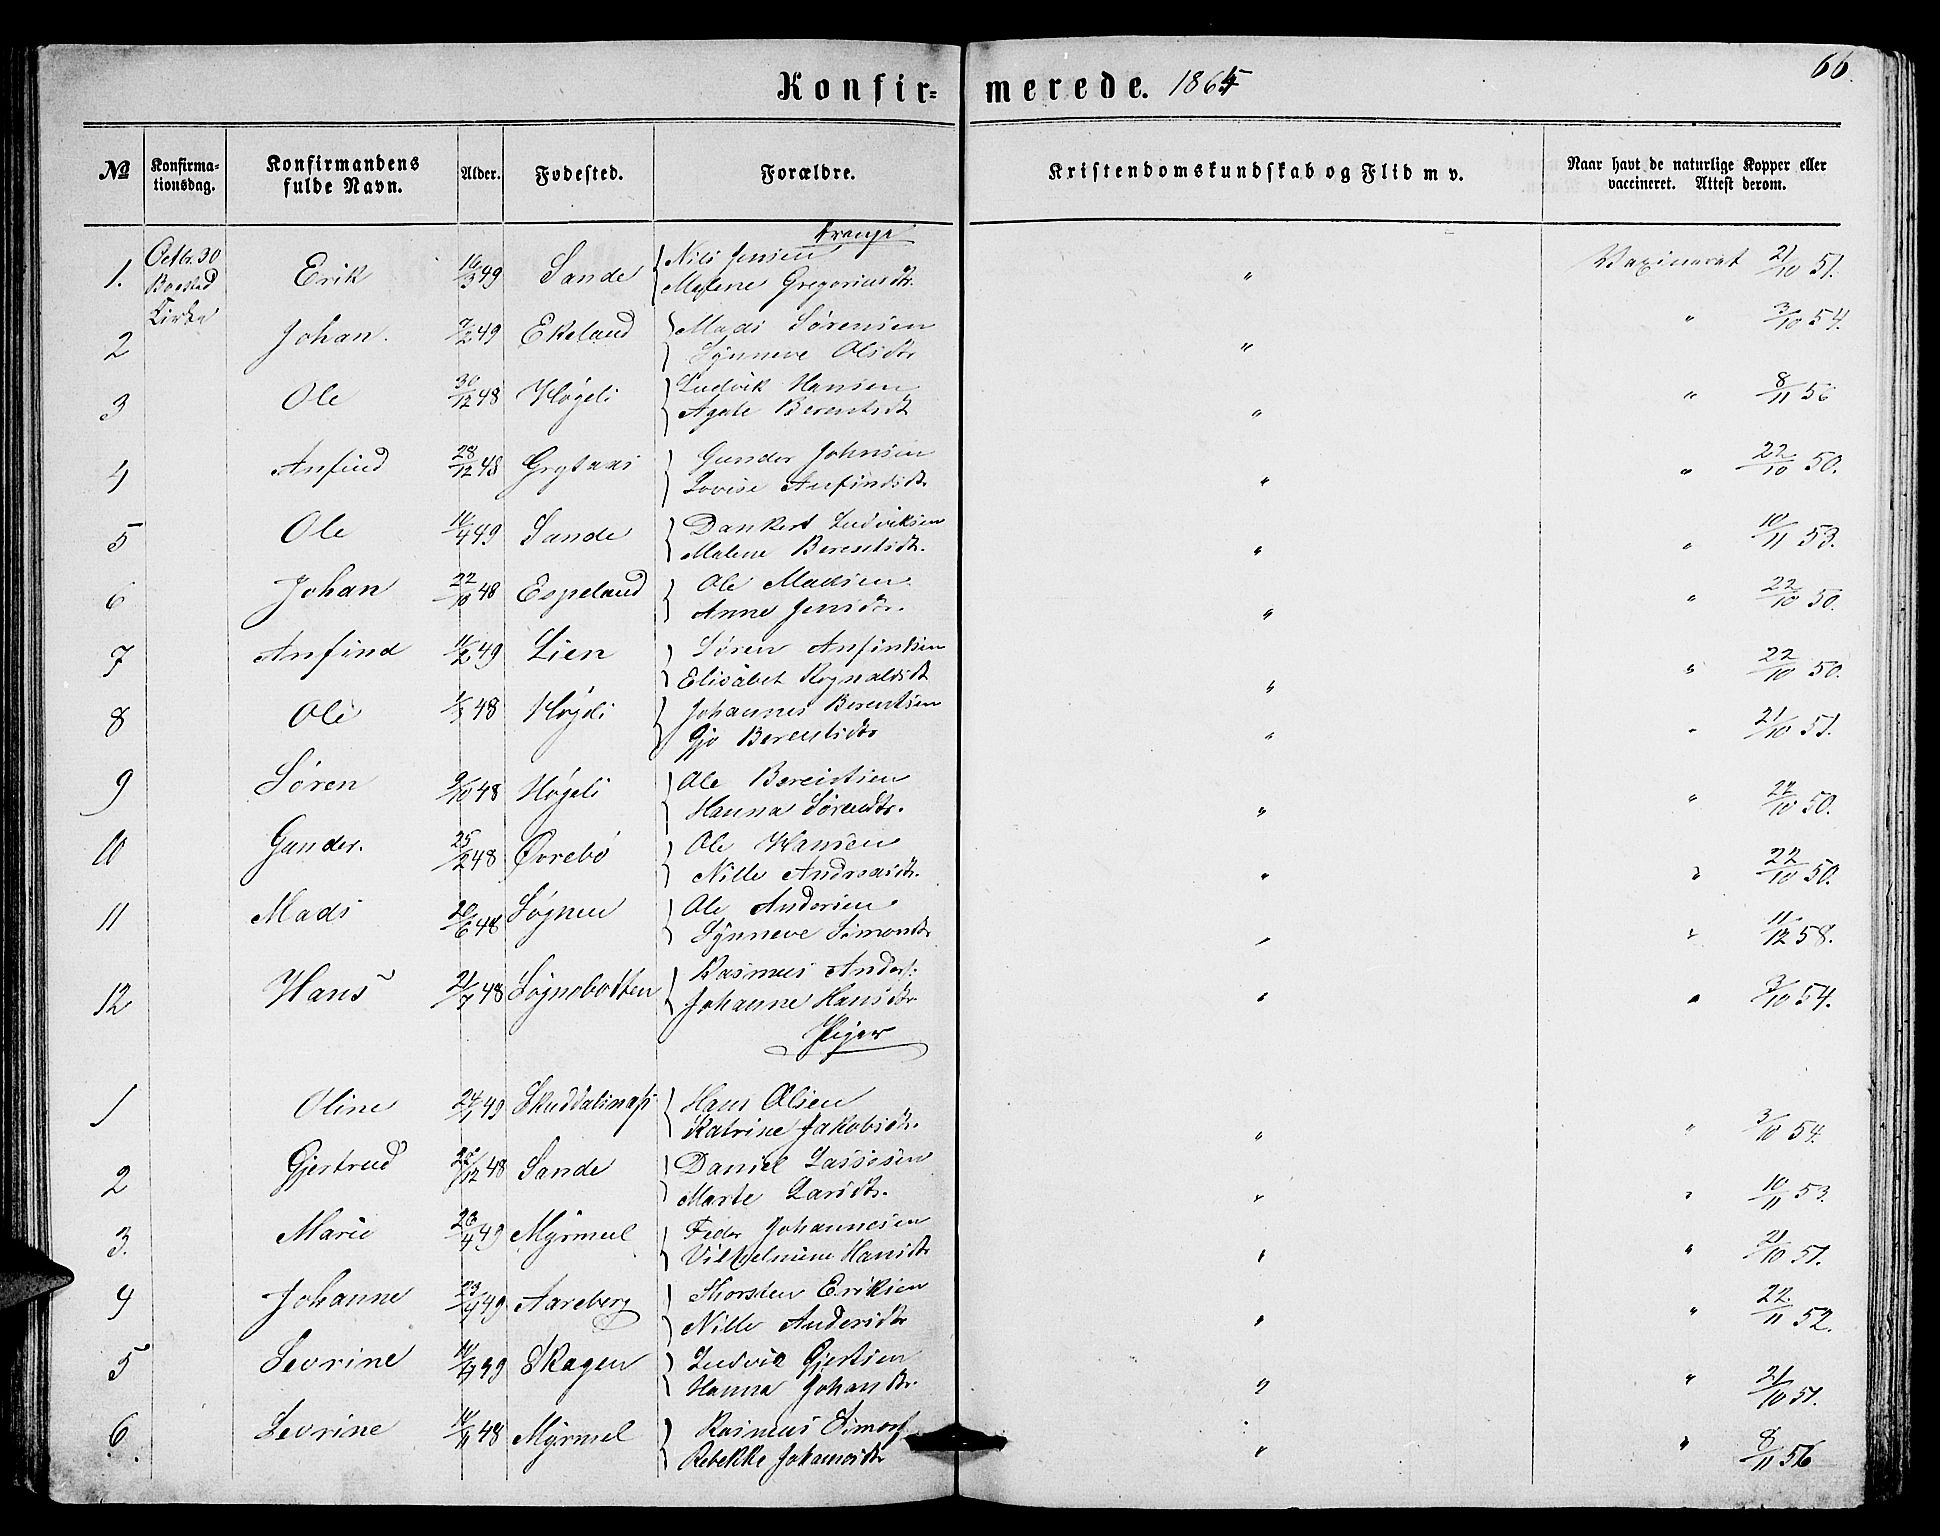 66.
Konfirmerede. 1864
№ Konfirmationsdag. Konfirmandens fulde Navn. Alder. Fødested. Forældre. Kristendomskundskab og Flid m v. Naar havt de naturlige Kopper eller vaccineret. Attest derom.
Drenge
1. Octbr. 30 Kirke Erik 16/3 49 Sande Nils Jensen " 21/10 51.
Malene Gregoriusdtr.
2 Johan. 7/2 49 Ekeland Mads Sørensen " " 3/10 54.
Synneve Olsdtr
3 Ole 30/12 48 Høgeli Ludvik Hansen " " 8/11 56
Agate Berentsdtr
4 Anfind 28/12 48 Grytaas Gunder Johnsen " " 22/10 50.
Lovise Anfindsdtr.
5 Ole Sande Dankert Ludviksen " " 10/11 53.
Malene Berentsdtr.
6 Johan 22/10 48 Espeland Ole Madsen " " 22/10 50.
Anne Jensdtr.
7 Anfind Lien Søren Anfindsen " " 22/10 50.
Elisabet Regnaldsdtr
8 Ole 48 Høgeli Johannes Berentsen " " 21/10 51.
Berentsdtr
9 Søren 9/10 48 Høgeli Ole Berentsen " " 22/10 50.
Hanna Sørensdtr.
10 Gunder. 25/2 48 Øvrebø Ole Hansen " " 22/10 50.
Nille Andreasdtr.
11 Mads 48 Søgnen Ole Andersen " " 11/12 58.
Synneve Simonsdtr
12 Hans 21/7 48 Søgnebotten Rasmus Anders: " " 3/10 54.
Johanne Hansdtr
Piger
1 Oline 24/1 49 Hans Olsen " " 3/10 54.
Katrine Jakobsdtr.
2 Gjertrud 48 Sande Daniel Lassesen " " 10/11 53.
Marte Larsdtr.
3. Marie 23/4 49 Myrmel Peder Johannesen " " 21/10 51.
Vilhelmine Hansdtr
4 Johanne 23/4 49 Aareberg Thorsten Eriksen " " 22/11 52.
Nille Andersdtr
5 Sevrine 49 Skagen Ludvic Gjertsen " " 21/10 51.
Hanna Johansdtr.
6. Sevrine 48 Myrmel Rasmus Simons " " 8/11 56
Rebekke Johansdtr